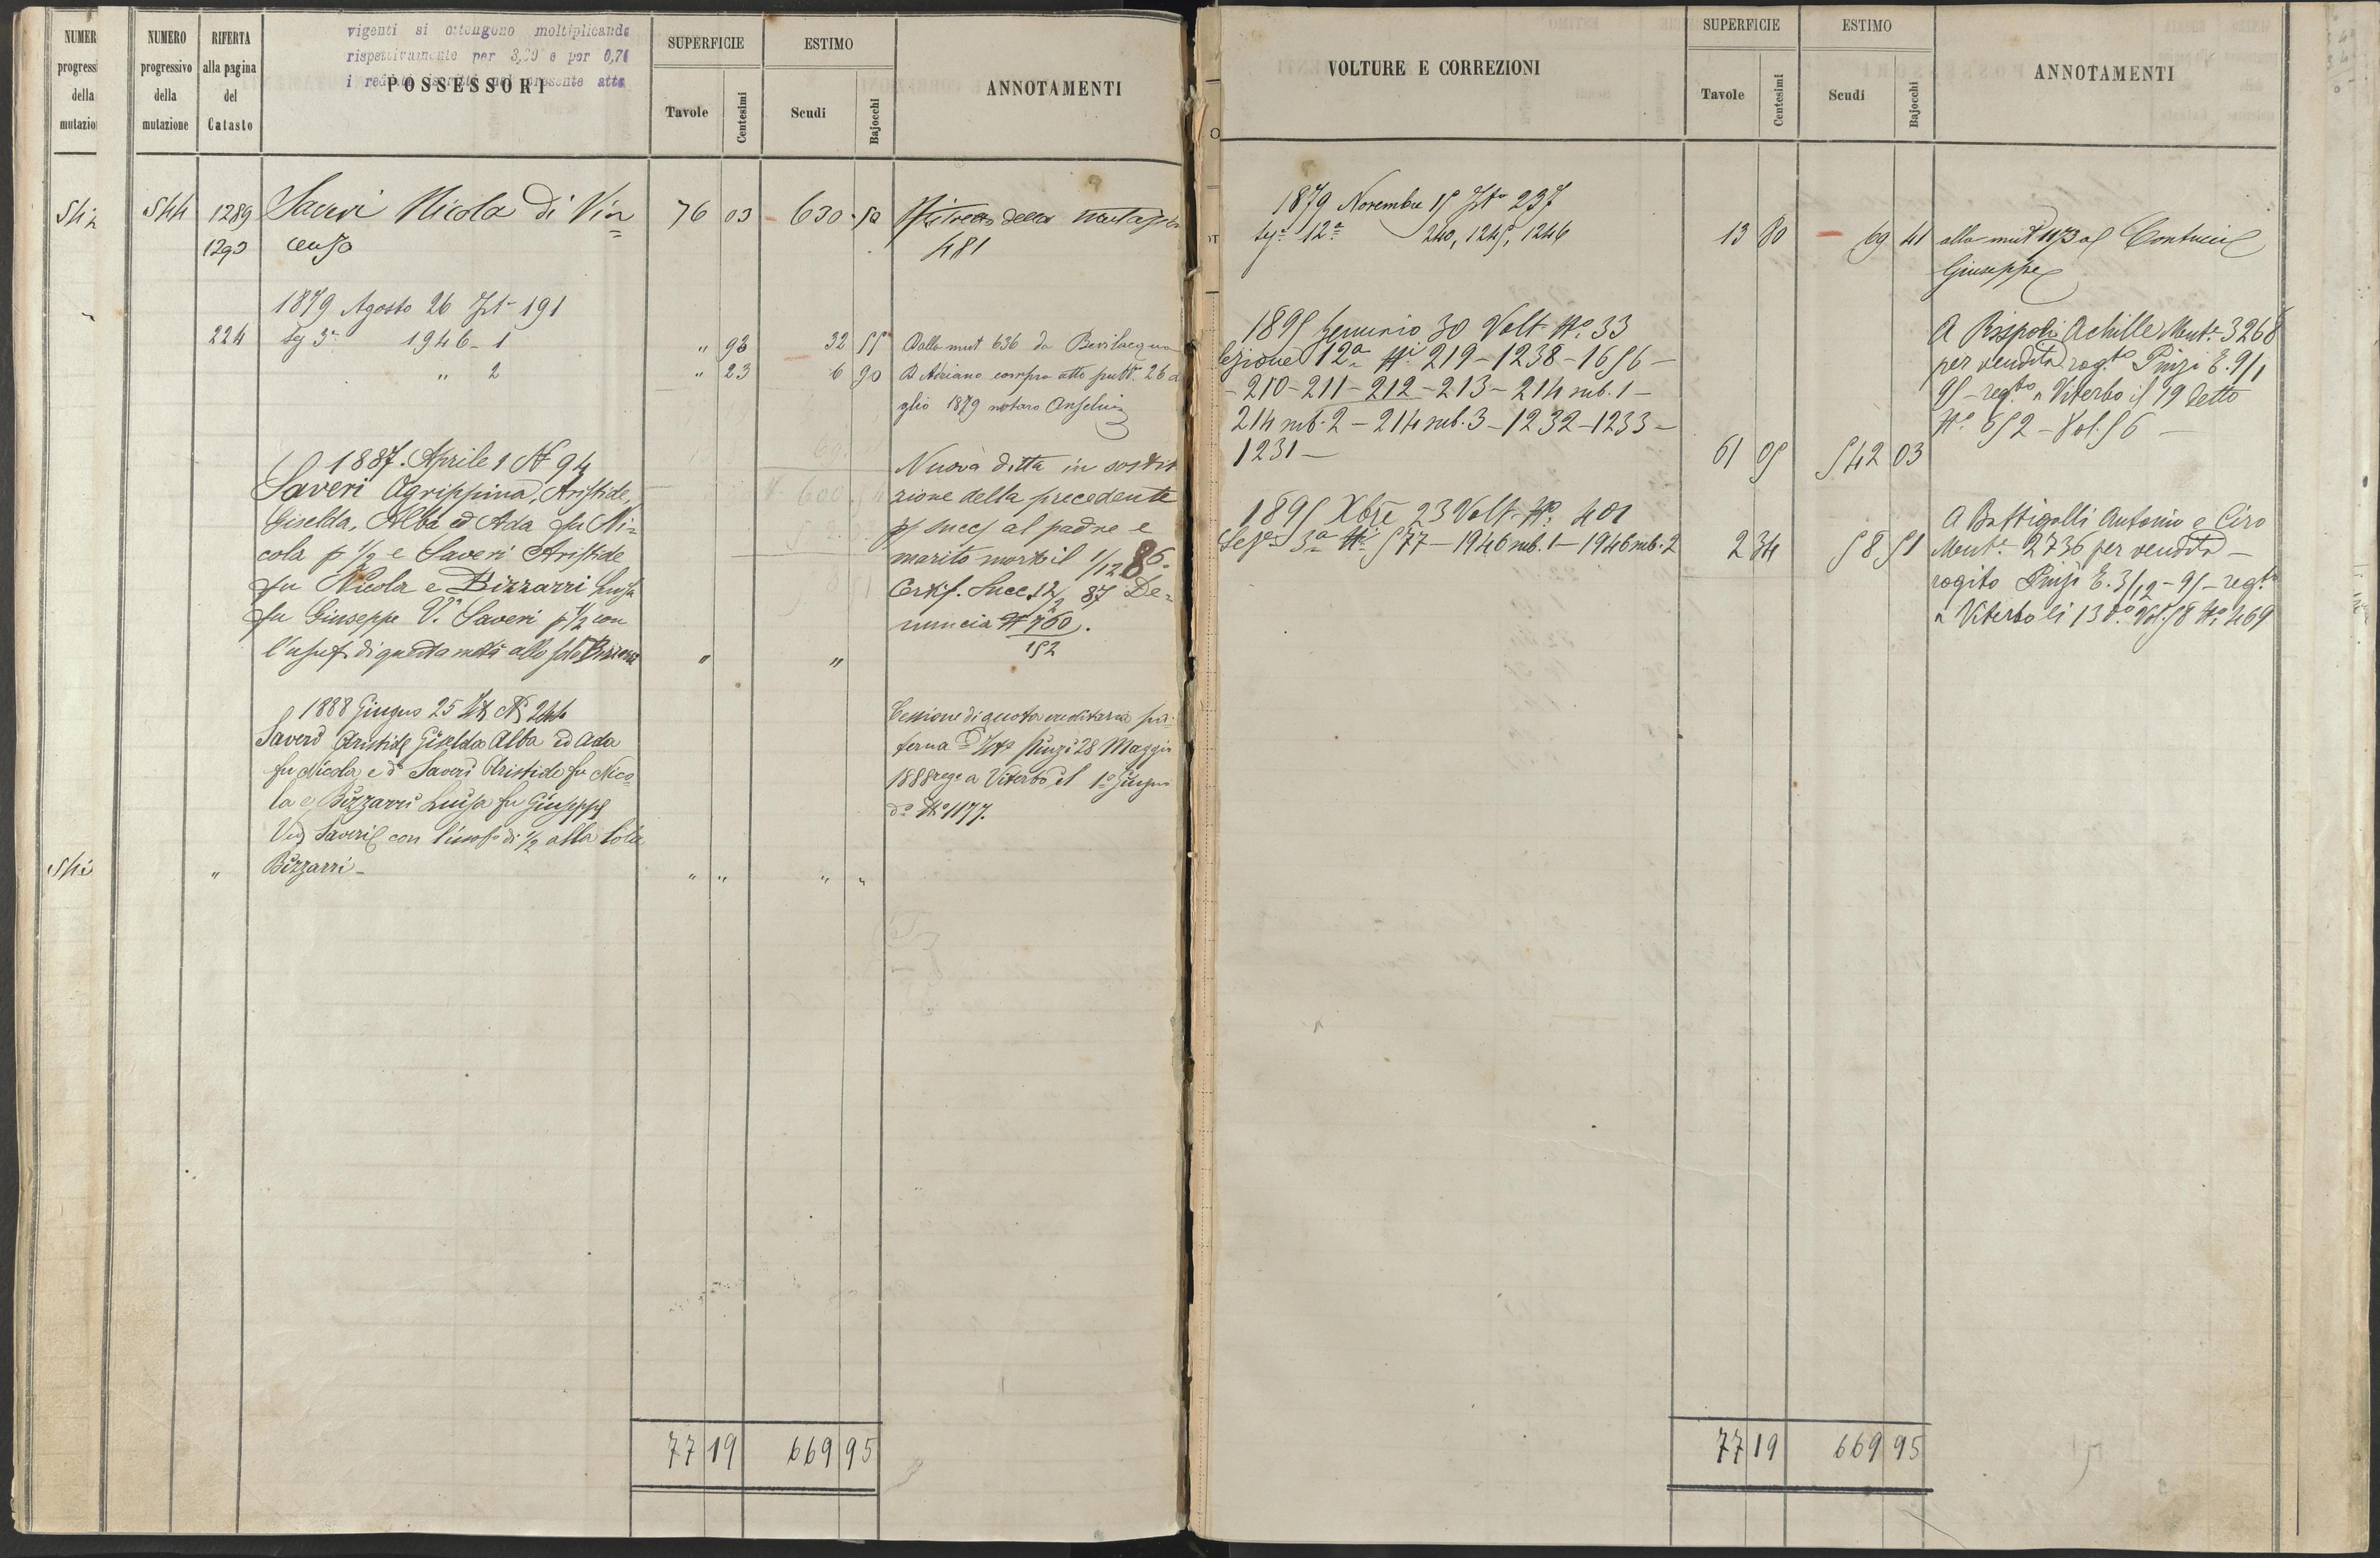 NUMERO progressivo della mutazione
RIFERTA alla pagina del Catasto
vigenti si ottengono moltiplicando
rispettivamente per 3,20 e per 0,71
i redditi iscritti nel presente atto
POSSESSORI
SUPERFICIE
Tavole
Centesimi
ESTIMO
Scudi
Bajocchi
ANNOTAMENTI
544 1289 Saveri Nicola di Vin= 76 03 630 50
1290 cenzo 481
1879 Agosto 26
191
224 Sez 3ª 1946-1 " 93 32 55 Dalla mut 636 da Bevilacqua
" 2 " 23 6 90 Adriano compra atto pubb. 26
glio 1879 notaro Anselmi
1887. Aprile 1 N 94 Nuova ditta in sostit
Saveri Agrippina, Aristide, zione della precedente
Giselda, Alba ed Ada fu Ni= p succ al padre e
cola p 1/2 e Saveri Aristide marito morto il 1/12 86.
fu Nicola e Bizzarri Luisa Certif. Succ. 12/2 87 De=
fu Giuseppe Vª Saveri p 1/2 con nuncia N 760/152.
l'usuf. di questa metà alla sola Bizzarri " "
1888 Giugno 25 N 244 Cessione di quota ereditaria pa
Saveri Aristide Giselda Alba ed Ada terna Pinzi 28 Maggio
fu Nicola, e di Saveri Aristide fu Nico 1888 reg a Viterbo il 1º Giugno
la e Bizzarri Luisa fu Giuseppe dº Nº 1177.
Ved Saveri con l'usufº di 1/2 alla sola
" Bizzarri- " " " "
77 19 669 95
VOLTURE E CORREZIONI
SUPERFICIE
Tavole
Centesimi
ESTIMO
Scudi
Bajocchi
ANNOTAMENTI
1879 Novembre 15 237
Sezª 12ª 240, 1245, 1246 13 80 69 41 alla mut 1173 a Contucci
Giuseppe
1895 Gennaio 30 Volt. Nº 33 A Rispoli Achille Mutª 3268
Sezione 12ª Ni 219-1238-1656- per vendita rogº Pinzi E. 9/1
-210-211-212-213-214 sub. 1- 95 - regtº a Viterbo il 19 detto
214 sub. 2-214 sub. 3-1232-1233- Nº 652-Vol. 56-
1231- 61 05 542 03
1895 Xbre 23 Volt. Nº 401 A Battigalli Antonio e Ciro
Sezª 3ª Ni 577-1946 sub. 1-1946 sub. 2 2 34 58 51 Mutª 2736 per vendita-
rogito Pinzi E. 3/12-95-regtº
a Viterbo li 13 dº Vol. 58 Nº 469
77 19 669 95